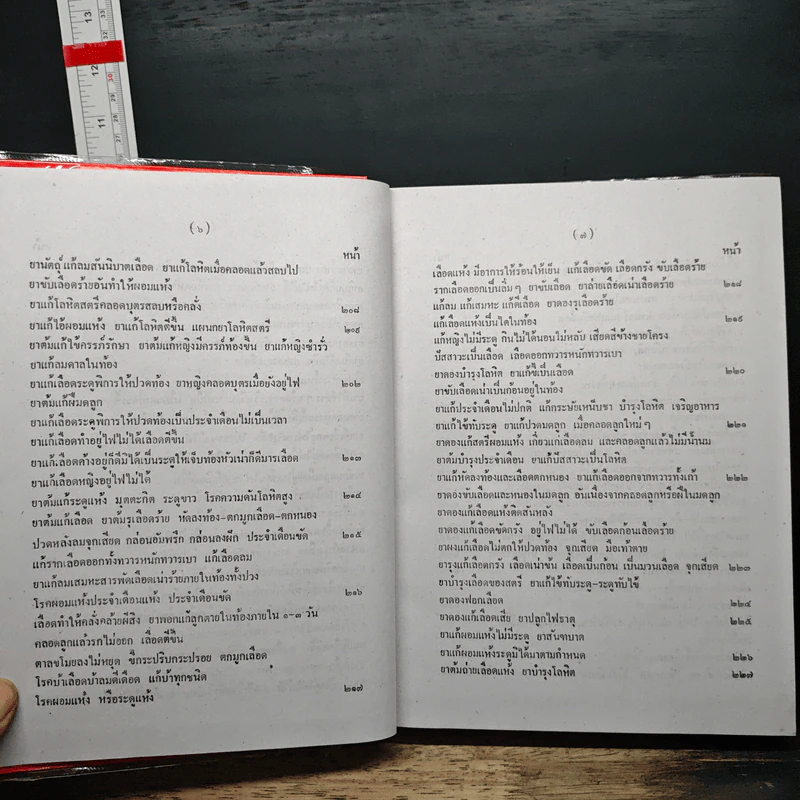 (๖)
หน้า
ยานัตถุ์ แก้ลมสันนิบาตเลือด ยาแก้โลหิตเมื่อคลอดแล้วสลบไป
ยาขับเลือดร้ายอันทำให้ผอมแห้ง
ยาแก้โลหิตสตรีคลอดบุตรสลบหรือคลั่ง ๒๐๘
ยาแก้ไอ้ผอมแห้ง ยาแก้โลหิตตีขึ้น แผนกยาโลหิตสตรี ๒๐๙
ยาต้มแก้ไข้ครรภ์รักษา ยาต้มแก้หญิงมีครรภ์ท้องขึ้น ยาแก้หญิงชำรั่ว
ยาแก้ลมดาลในท้อง
ยาแก้เลือดระดูพิการให้ปวดท้อง ยาหญิงคลอดบุตรเมื่อยังอยู่ไฟ ๒๐๒
ยาต้มแก้ฝีมดลูก
ยาแก้เลือดระดูพิการให้ปวดท้องเป็นประจำเดือนไม่เป็นเวลา
ยาแก้เลือดทำอยู่ไฟไม่ได้เลือดตีขึ้น
ยาแก้เลือดค้างอยู่ก็ดีมิได้เป็นระดูให้เจ็บท้องหัวเน่าก็ดีมารเลือด ๒๑๓
ยาแก้เลือดหญิงอยู่ไฟไม่ได้
ยาต้มแก้ระดูแห้ง มุตตะกิต ระดูขาว โรคความดันโลหิตสูง ๒๑๔
ยาต้มแก้เลือด ยาต้มรุเลือดร้าย ทัดลงท้อง-ตกมูกเลือด-ตกหนอง
ปวดหลังลมจุกเสียด กล่อนอัมพรึก กล่อนลงฝัก ประจำเดือนขัด ๒๑๕
แก้รากเลือดออกทั้งทวารหนักทวารเบา แก้เลือดลม
ยาแก้ลมเสมหะสารพัดเลือดเน่าร้ายภายในท้องทั้งปวง
โรคผอมแห้งประจำเดือนแห้ง ประจำเดือนขัด ๒๑๖
เลือดทำให้คลั่งคล้ายผีสิง ยาพอกแก้ลูกตายในท้องภายใน ๑-๓ วัน
คลอดลูกแล้วรกไม่ออก เลือดตีขึ้น
ตาลขโมยลงไม่หยุด ขี้กระปริบกระปรอย ตกมูกเลือด
โรคบ้าเลือดบ้าลมดีเดือด แก้บ้าทุกชนิด
โรคผอมแห้ง หรือระดูแห้ง ๒๑๗
(๗)
หน้า
เลือดแห้ง มีอาการให้ร้อนให้เย็น แก้เลือดขัด เลือดกรัง ขับเลือดร้าย
รากเลือดออกเป็นลิ่มๆ ยาขับเลือด ยาล่ายเลือดเน่าเลือดร้าย ๒๑๘
แก้ลม แก้เสมหะ แก้ดีเลือด ยาดองรุเลือดร้าย
แก้เลือดแห้งเป็นใดในท้อง ๒๑๙
แก้หญิงไม่มีระดู กินไม่ได้นอนไม่หลับ เสียดสีข้างชายโครง
ปัสสาวะเป็นเลือด เลือดออกทวารหนักทวารเบา
ยาดองบำรุงโลหิต ยาแก้ขี้เป็นเลือด ๒๒๐
ยาขับเลือดเน่าเป็นก้อนอยู่ในท้อง
ยาแก้ประจำเดือนไม่ปกติ แก้กระษัยเหน็บชา บำรุงโลหิต เจริญอาหาร
ยาแก้ไข้ทับระดู ยาแก้ปวดมดลูก เมื่อคลอดลูกใหม่ๆ ๒๒๑
ยาดองแก้สตรีผอมแห้ง เกี่ยวแก่เลือดลม และคลอดลูกแล้วไม่มีน้ำนม
ยาต้มบำรุงประจำเดือน ยาแก้ปัสสาวะเป็นโลหิต
ยาแก้หัดลงท้องและเลือดตกหนอง ยาแก้เลือดออกจากทวารทั้งเก้า ๒๒๒
ยาดองขับเลือดและหนองในมดลูก อันเนื่องจากคลอดลูกหรือฝีในมดลูก
ยาดองแก้เลือดแห้งติดสันหลัง
ยาดองแก้เลือดขัดกรัง อยู่ไฟไม่ได้ ขับเลือดก้อนเลือดร้าย
ยาผงแก้เลือดไม่ตกให้ปวดท้อง จุกเสียด มือเท้าตาย
ยารุงแก้เลือดกรัง เลือดเน่าข้น เลือดเป็นก้อน เป็นมวนเลือด จุกเสียด ๒๒๓
ยาบำรุงเลือดของสตรี ยาแก้ไข้ทับระดู-ระดูทับไข้
ยาดองฟอกเลือด ๒๒๔
ยาดองแก้เลือดเสีย ยาปลูกไฟธาตุ ๒๒๕
ยาแก้ผอมแห้งไม่มีระดู ยาสันฑบาต
ยาแก้ผอมแห้งระดูมิได้มาตามกำหนด ๒๒๖
ยาต้มถ่ายเลือดแห้ง ยาบำรุงโลหิต ๒๒๗
11
12
13